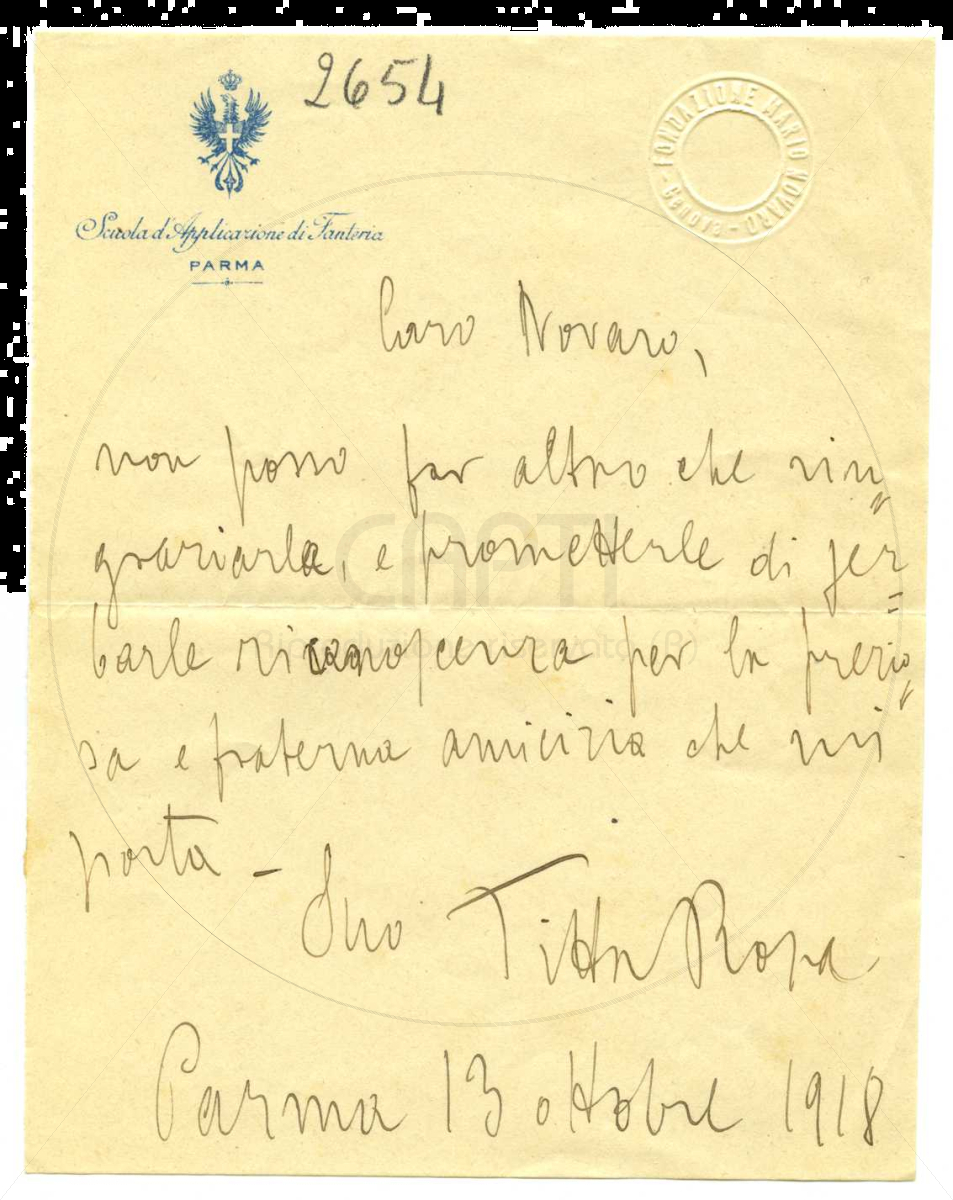 2654
FONDAZIONE MARIO NOVARO - Genova -
Scuola d'Applicazione di Fanteria
PARMA
Caro Novaro,
non posso far altro che rin=
graziarla, e prometterle di ser=
barle riconoscenza per la prezio=
sa e fraterna amicizia che mi
porta -
Suo Titta Rosa
Parma 13 ottobre 1918
CAPTI
Riproduzione riservata (R)